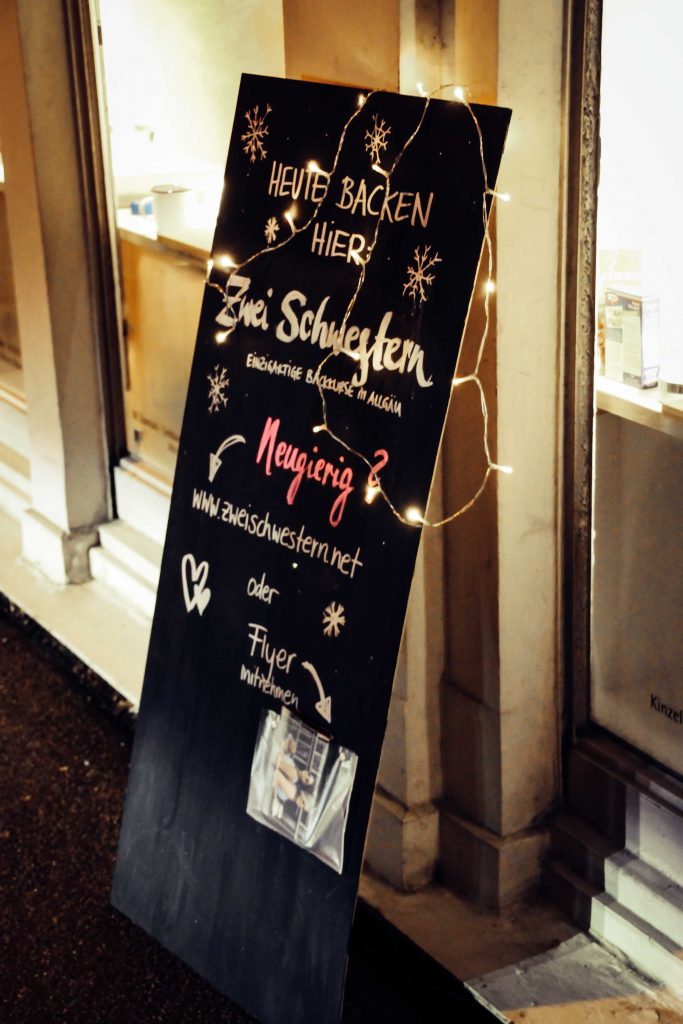 HEUTE BACKEN
HiER:
Zwei Schwestern
EINZIGARTIGE BACKKURSE IM ALLGÄU
Neugierig?
www.zweischwestern.net
oder
Flyer
mitnehmen
Kinzel